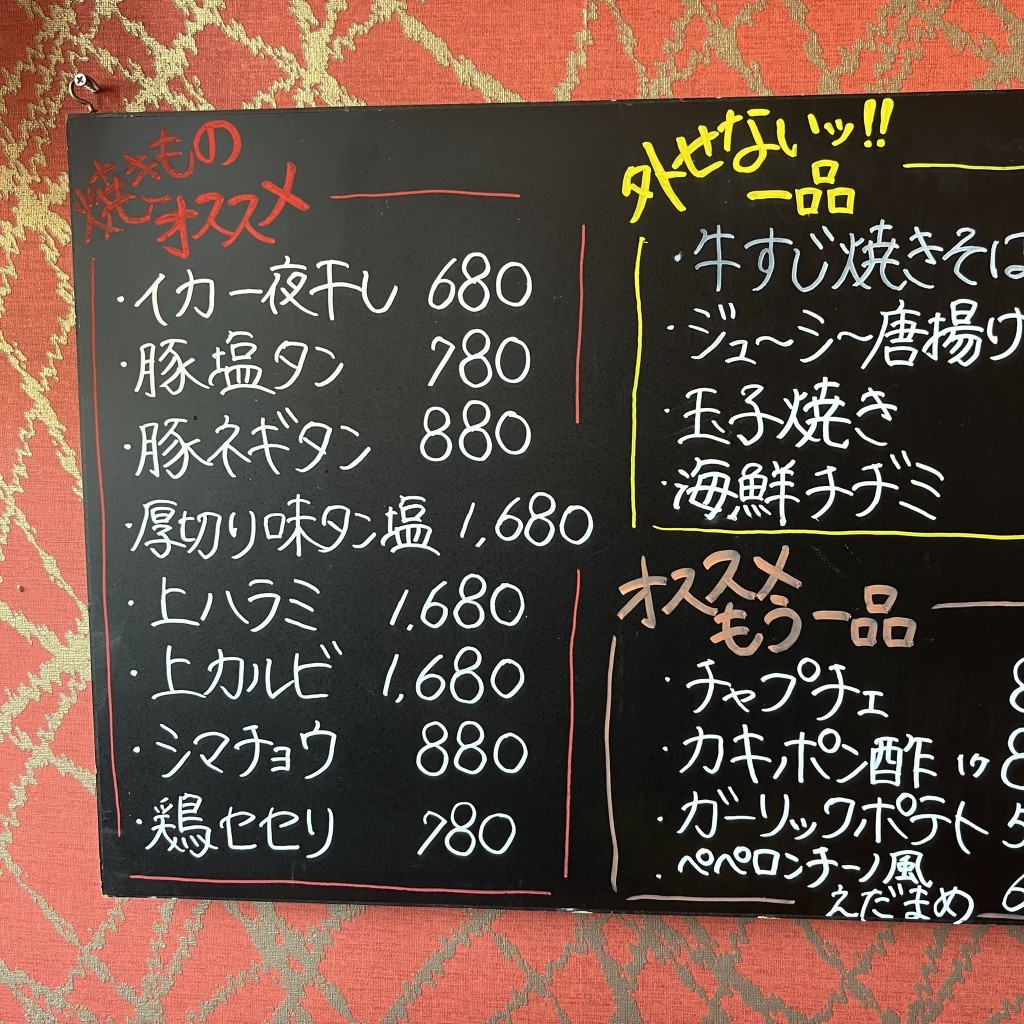 焼きもの
オススメ
・イカ一夜干し 680
・豚塩タン 780
・豚ネギタン 880
・厚切り味タン塩 1,680
・上ハラミ 1,680
・上カルビ 1,680
・シマチョウ 880
・鶏セセリ 780
外せないッ!!
一品
・牛すじ焼きそば
・ジューシ～唐揚げ
・玉子焼き
・海鮮チヂミ
オススメ
もう一品
・チャプチェ 8
・カキポン酢 1ケ 8
・ガーリックポテト 5
・ペペロンチーノ風
えだまめ 6